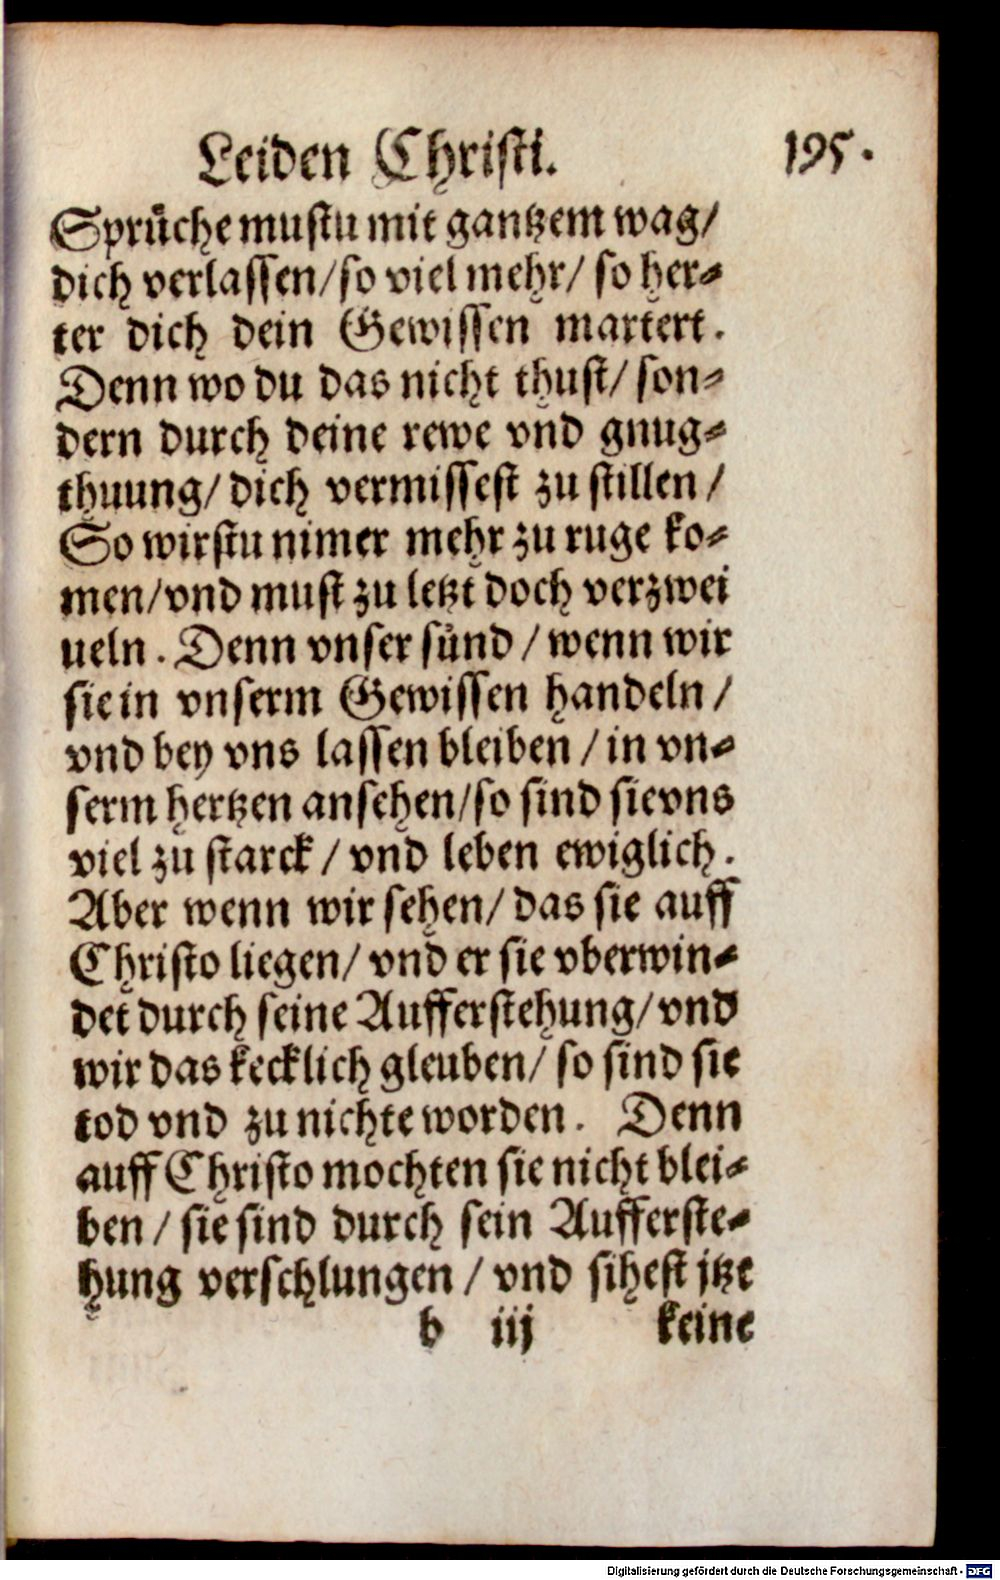 Leiden Christi. 195.
Sprüche mustu mit gantzem wag/
dich verlassen/so viel mehr/ so her-
ter dich dein Gewissen martert.
Denn wo du das nicht thust/ son-
dern durch deine rewe vnd gnug-
thuung/ dich vermissest zu stillen/
So wirstu nimer mehr zu ruge ko-
men/vnd must zu letzt doch verzwei
ueln. Denn vnser sünd / wenn wir
sie in vnserm Gewissen handeln/
vnd bey vns lassen bleiben / in vn-
serm hertzen ansehen/so sind sie vns
viel zu starck / vnd leben ewiglich.
Aber wenn wir sehen/ das sie auff
Christo liegen/ vnd er sie vberwin-
det durch seine Aufferstehung/ vnd
wir das kecklich gleuben/ so sind sie
tod vnd zu nichte worden. Denn
auff Christo mochten sie nicht blei-
ben / sie sind durch sein Aufferste-
hung verschlungen / vnd sihest jtzt
b iij keine
Digitalisierung gefördert durch die Deutsche Forschungsgemeinschaft - DFG